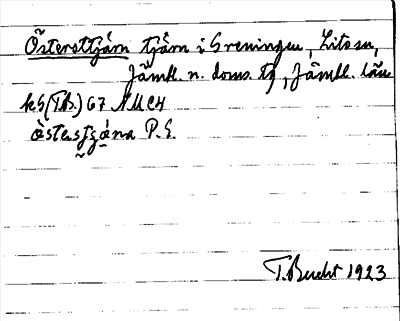 Östersttjärn tjärn i Greningen, Litssn,
Jämtl. n. doms. tg, Jämtl. län
kG (TB.) 67 NUCH
òstasţʒána P.S.
T. Bucht 1923